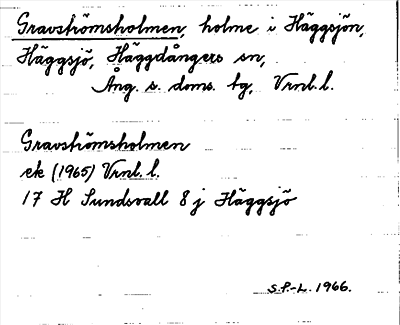 Gravströmsholmen, holme i Häggsjön,
Häggsjö, Häggdångers sn,
Ång. s. doms. tg, Vrnl. l.
Gravströmsholmen
ek (1965) Vrnl. l.
17 H Sundsvall 8 j Häggsjö
S.P.-L. 1966.